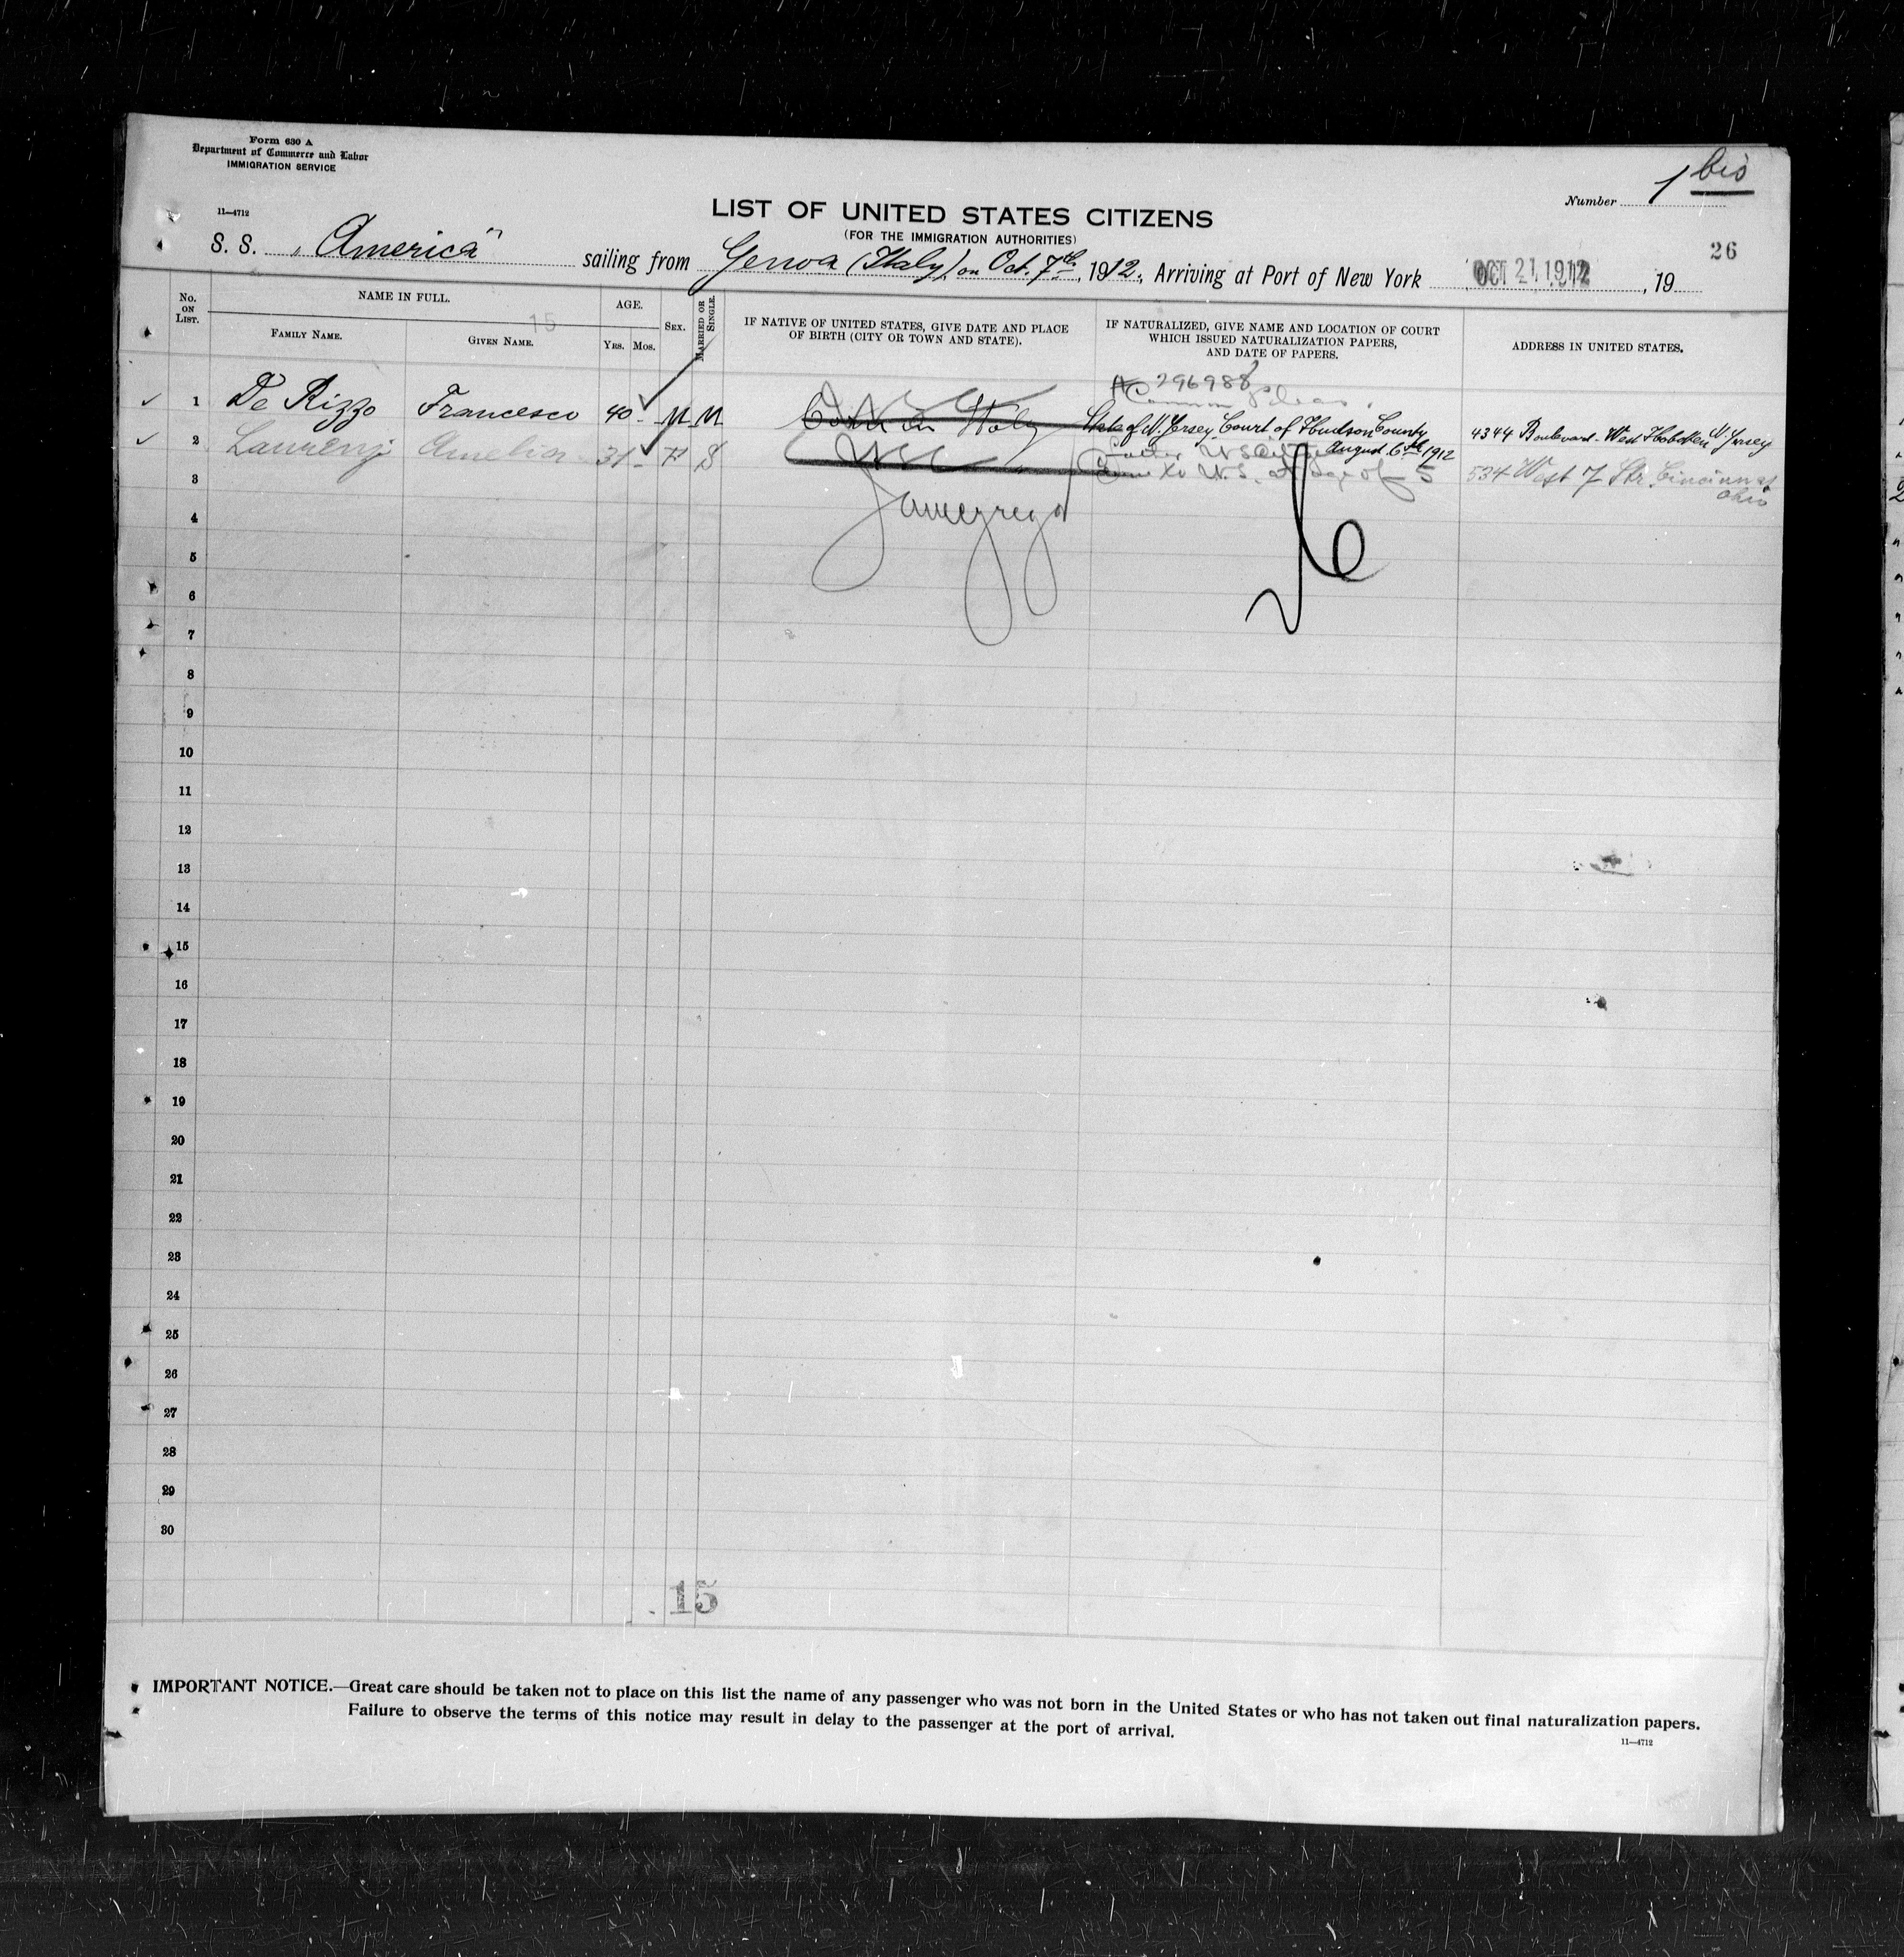 Form 630 A
Department of Commerce and Labor
IMMIGRATION SERVICE
11—4712
Number 1 bis
LIST OF UNITED STATES CITIZENS
(FOR THE IMMIGRATION AUTHORITIES)
26
S. S. "America" sailing from Genoa (Italy) on Oct. 7th, 1912, Arriving at Port of New York OCT 21 1912, 19
No. ON LIST.
NAME IN FULL.
FAMILY NAME.
GIVEN NAME.
15
AGE.
YRS. MOS.
SEX.
MARRIED OR SINGLE.
IF NATIVE OF UNITED STATES, GIVE DATE AND PLACE
OF BIRTH (CITY OR TOWN AND STATE).
IF NATURALIZED, GIVE NAME AND LOCATION OF COURT
WHICH ISSUED NATURALIZATION PAPERS,
AND DATE OF PAPERS.
ADDRESS IN UNITED STATES.
296988
Common Pleas
1 De Rizzo Francesco 40 - M M State of N. Jersey Court of Hudson County August 6th 1912 4344 Boulevard. West Hoboken N. Jersey
2 Laurenzi Amelia 31 - F S
Came to U.S. at age of 5
534 West 7 Str. Cincinnati
Ohio
3
4
5
6
7
8
9
10
11
12
13
14
15
16
17
18
19
20
21
22
23
24
25
26
27
28
29
30
15
IMPORTANT NOTICE.—Great care should be taken not to place on this list the name of any passenger who was not born in the United States or who has not taken out final naturalization papers.
Failure to observe the terms of this notice may result in delay to the passenger at the port of arrival.
11—4712